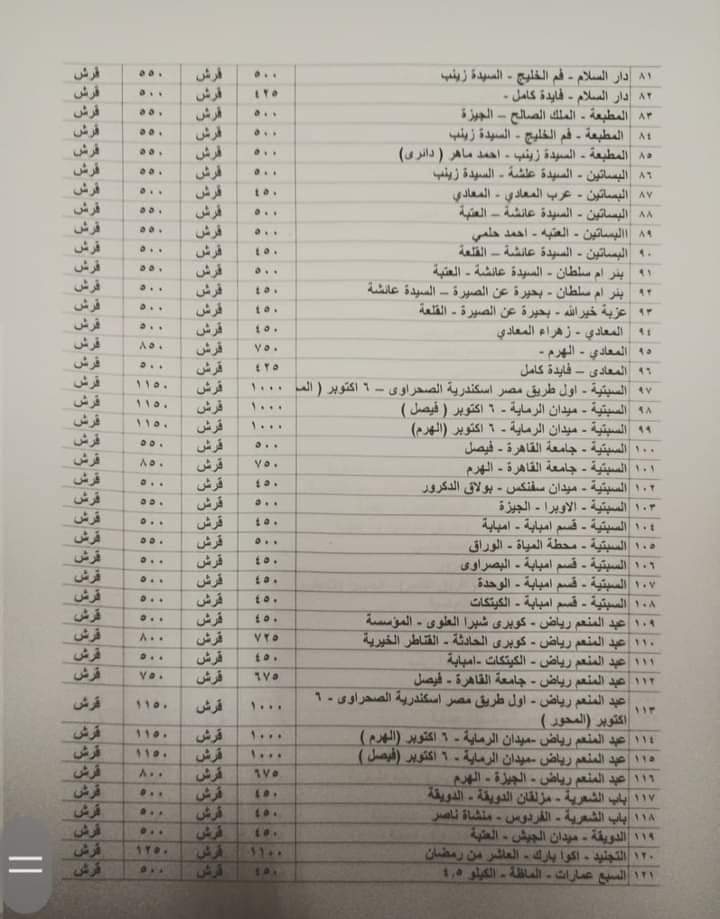 ٨١ دار السلام - فم الخليج - السيدة زينب ٥٠٠ قرش ٥٥٠ قرش
٨٢ دار السلام - فايدة كامل - ٤٢٥ قرش ٥٠٠ قرش
٨٣ المطبعة - الملك الصالح – الجيزة ٥٠٠ قرش ٥٥٠ قرش
٨٤ المطبعة - فم الخليج - السيدة زينب ٥٠٠ قرش ٥٥٠ قرش
٨٥ المطبعة - السيدة زينب - احمد ماهر ( دائرى) ٥٠٠ قرش ٥٥٠ قرش
٨٦ البساتين - السيدة علشة - السيدة زينب ٥٠٠ قرش ٥٥٠ قرش
٨٧ البساتين - عرب المعادي - المعادي ٤٥٠ قرش ٥٠٠ قرش
٨٨ البساتين - السيدة عائشة – العتبة ٥٠٠ قرش ٥٥٠ قرش
٨٩ االبساتين - العتبه - احمد حلمي ٥٠٠ قرش ٥٥٠ قرش
٩٠ البساتين - السيدة عائشة – القلعة ٤٥٠ قرش ٥٠٠ قرش
٩١ بئر ام سلطان - السيدة عائشة - العتبة ٥٠٠ قرش ٥٥٠ قرش
٩٢ بئر ام سلطان - بحيرة عن الصيرة – السيدة عائشة ٤٥٠ قرش ٥٠٠ قرش
٩٣ عزبة خيرالله - بحيرة عن الصيرة - القلعة ٤٥٠ قرش ٥٠٠ قرش
٩٤ المعادي - زهراء المعادي ٤٥٠ قرش ٥٠٠ قرش
٩٥ المعادي - الهرم - ٧٥٠ قرش ٨٥٠ قرش
٩٦ المعادى – فايدة كامل ٤٢٥ قرش ٥٠٠ قرش
٩٧ السبتية - اول طريق مصر اسكندرية الصحراوى – ٦ اكتوبر ( ١٠٠٠ قرش ١١٥٠ قرش
٩٨ السبتية - ميدان الرماية - ٦ اكتوبر ( فيصل ) ١٠٠٠ قرش ١١٥٠ قرش
٩٩ السبتية - ميدان الرماية - ٦ اكتوبر (الهرم) ١٠٠٠ قرش ١١٥٠ قرش
١٠٠ السبتية - جامعة القاهرة - فيصل ٥٠٠ قرش ٥٥٠ قرش
١٠١ السبتية - جامعة القاهرة - الهرم ٧٥٠ قرش ٨٥٠ قرش
١٠٢ السبتية - ميدان سفنكس - بولاق الدكرور ٤٥٠ قرش ٥٠٠ قرش
١٠٣ السبتية - الاوبرا - الجيزة ٥٠٠ قرش ٥٥٠ قرش
١٠٤ السبتية - قسم امبابة - امبابة ٤٥٠ قرش ٥٠٠ قرش
١٠٥ السبتية - محطة المياة - الوراق ٥٠٠ قرش ٥٥٠ قرش
١٠٦ السبتية - قسم امبابة - البصراوى ٤٥٠ قرش ٥٠٠ قرش
١٠٧ السبتية - قسم امبابة - الوحدة ٤٥٠ قرش ٥٠٠ قرش
١٠٨ السبتية - قسم امبابة - الكيتكات ٤٥٠ قرش ٥٠٠ قرش
١٠٩ عبد المنعم رياض - كوبرى شبرا العلوى - المؤسسة ٤٥٠ قرش ٥٠٠ قرش
١١٠ عبد المنعم رياض - كوبرى الحادثة - القناطر الخيرية ٧٢٥ قرش ٨٠٠ قرش
١١١ عبد المنعم رياض - الكيتكات -امبابة ٤٥٠ قرش ٥٠٠ قرش
١١٢ عبد المنعم رياض - جامعة القاهرة - فيصل ٦٧٥ قرش ٧٥٠ قرش
١١٣ عبد المنعم رياض - اول طريق مصر اسكندرية الصحراوى - ٦ ١٠٠٠ قرش ١١٥٠ قرش
اكتوبر (المحور )
١١٤ عبد المنعم رياض -ميدان الرماية - ٦ اكتوبر (الهرم ) ١٠٠٠ قرش ١١٥٠ قرش
١١٥ عبد المنعم رياض -ميدان الرماية - ٦ اكتوبر (فيصل ) ١٠٠٠ قرش ١١٥٠ قرش
١١٦ عبد المنعم رياض - الجيزة - الهرم ٦٧٥ قرش ٨٠٠ قرش
١١٧ باب الشعرية - مزلقان الدويقة - الدويقة ٤٥٠ قرش ٥٠٠ قرش
١١٨ باب الشعرية - الفردوس - منشاة ناصر ٤٥٠ قرش ٥٠٠ قرش
١١٩ الدويقة - ميدان الجيش - العتبة ٤٥٠ قرش ٥٠٠ قرش
١٢٠ التجنيد - اكوا بارك - العاشر من رمضان ١١٠٠ قرش ١٢٥٠ قرش
١٢١ السبع عمارات - الماظة - الكيلو ٤,٥ ٤٥٠ قرش ٥٠٠ قرش